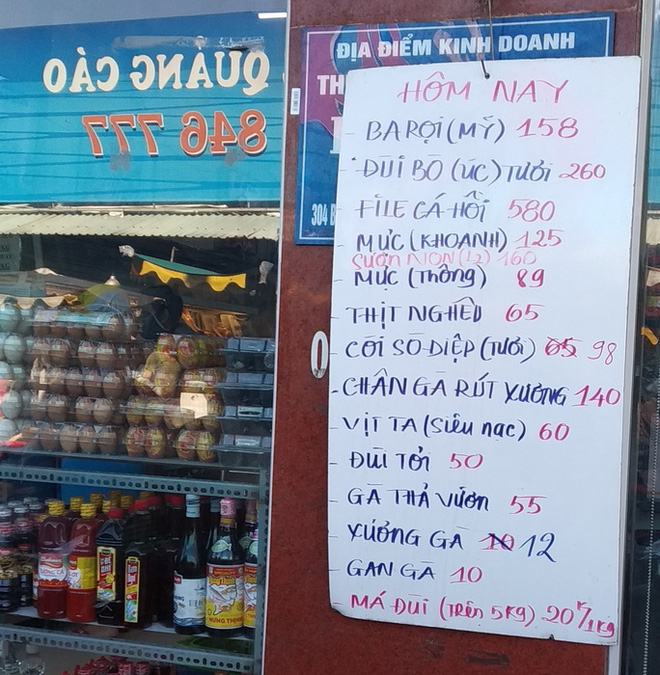 QUẢNG CÁO
846 777
ĐỊA ĐIỂM KINH DOANH
TH
304 B
HÔM NAY
- BA RỌI (MỸ) 158
- ĐÙI BÒ (ÚC) TƯƠI 260
- FILE CÁ HỒI 580
- MỰC (KHOANH) 125
SƯỜN NON (L2) 160
- MỰC (Thông) 89
- THỊT NGHÊU 65
- CỒI SÒ ĐIỆP (TƯƠI) 65 98
- CHÂN GÀ RÚT XƯƠNG 140
- VỊT TA (Siêu nạc) 60
- ĐÙI TỎI 50
- GÀ THẢ VƯỜN 55
- XƯƠNG GÀ 10 12
- GAN GÀ 10
MÁ ĐÙI (Trên 5kg) 20K/1kg
HƯNG THỊNH